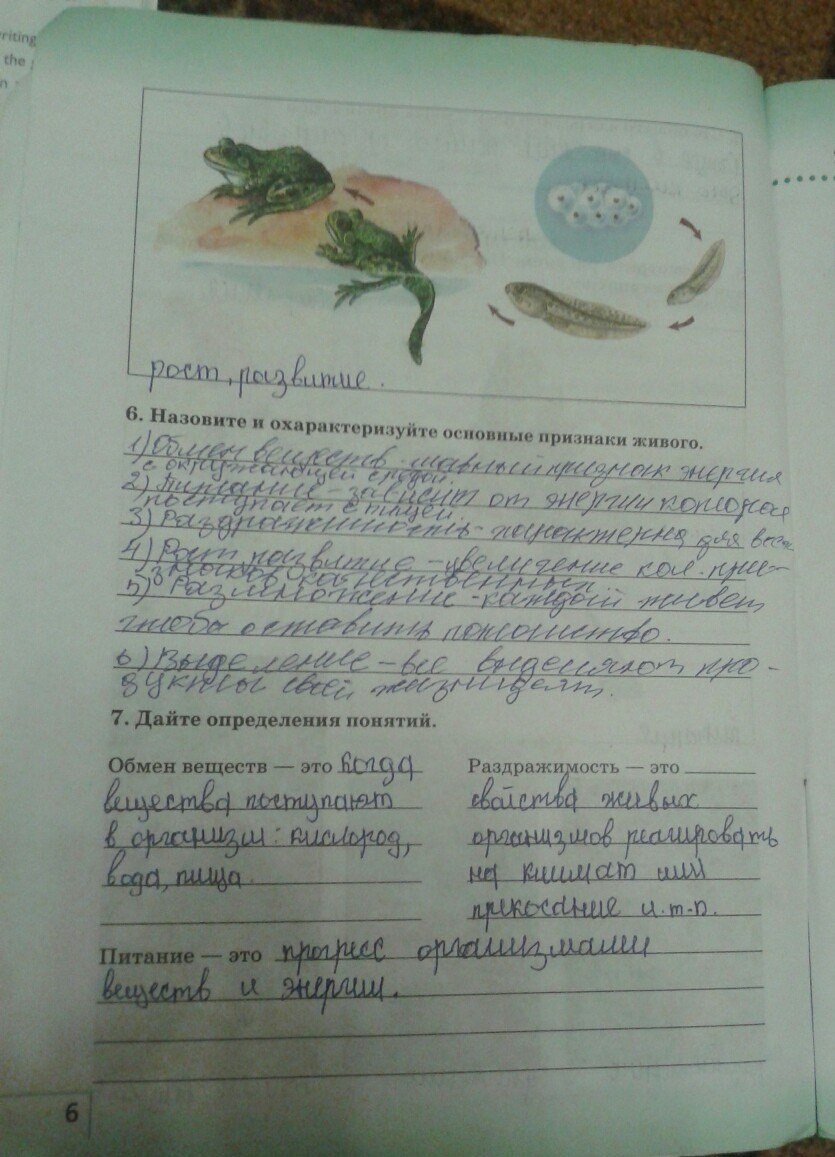 writing
the
рост, развитие.
6. Назовите и охарактеризуйте основные признаки живого.
1) Обмен веществ - главный признак энергия
с окружающей средой.
2) Питание - зависит от энергии которая
поступает с пищей.
3) Раздраженность - характерна для всех
4) Рост, развитие - увеличение кол. приз-
знаков качественных
5) Размножение - каждый живет
чтобы оставить потомство.
6) Выделение - все выделяют про-
дукты своей жизнидеят.
7. Дайте определения понятий.
Обмен веществ — это когда
вещества поступают
в организм: кислород,
вода, пища
Раздражимость — это
свойства живых
организмов реагировать
на климат или
прекосание и.т.п.
Питание — это прогресс организмами
веществ и энергии.
6